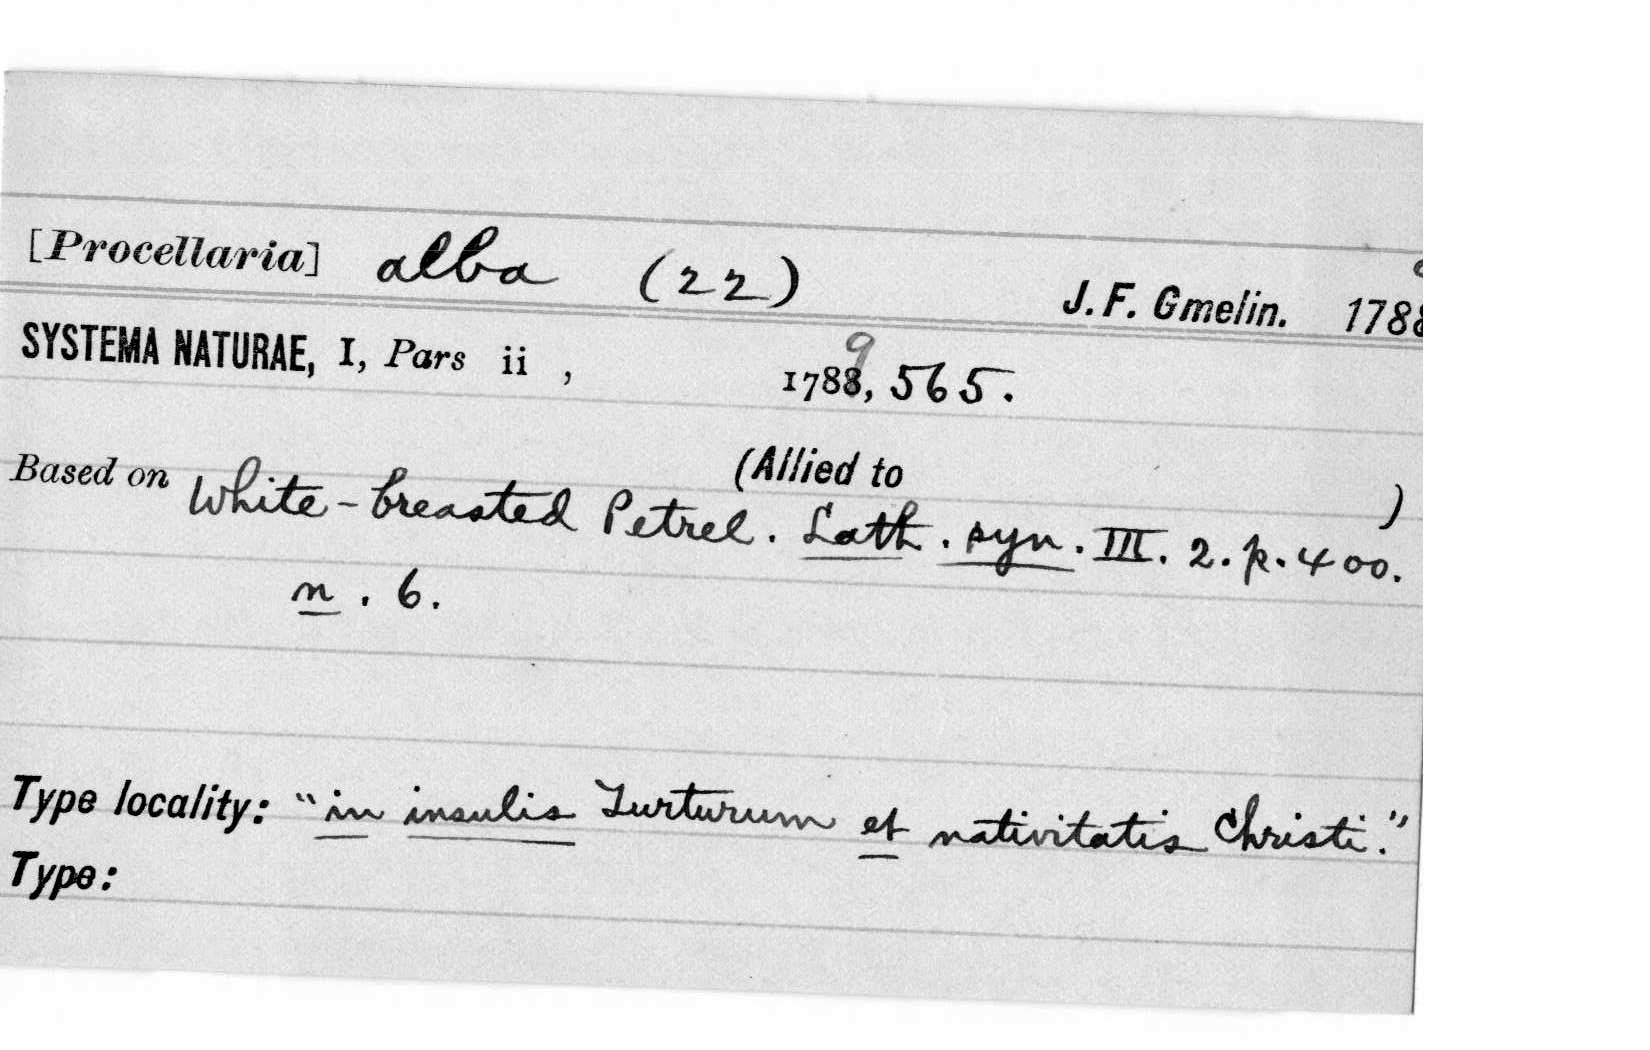 [Procellaria] alba (22) J. F. Gmelin. 1788
SYSTEMA NATURAE, I, Pars ii , 1788, 9 565.
Based on White-breasted Petrel. (Allied to )
Lath. syn. III. 2. p. 400.
n. 6.
Type locality: "in insulis Turturum et nativitatis Christi."
Type: